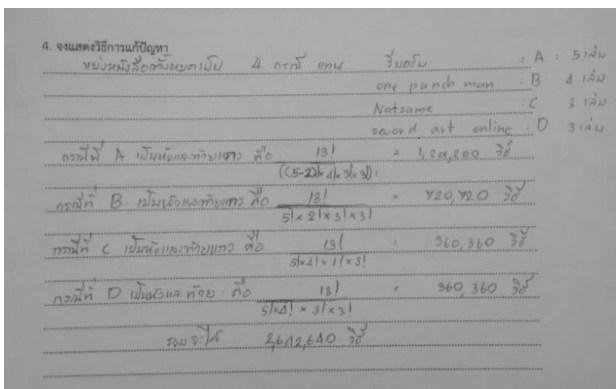 4. จงแสดงวิธีการแก้ปัญหา
แบ่งหนังสือทั้งหมดเป็น 4 กรณี แทน รีบอร์น : A : 5 เล่ม
one punch man : B 4 เล่ม
Natsume : C 3 เล่ม
sword art online : D 3 เล่ม
กรณีที่ A เป็นหัวและท้ายแถว คือ 13! / ((5-2)! × 4! × 3! × 3!) = 1,201,200 วิธี
กรณีที่ B เป็นหัวและท้ายแถว คือ 13! / 5! × 2! × 3! × 3! = 720,720 วิธี
กรณีที่ C เป็นหัวและท้ายแถว คือ 13! / 5! × 4! × 1! × 3! = 360,360 วิธี
กรณีที่ D เป็นหัวและท้าย คือ 13! / 5! × 4! × 3! × 3! = 360,360 วิธี
รวมจะได้ 2,642,640 วิธี